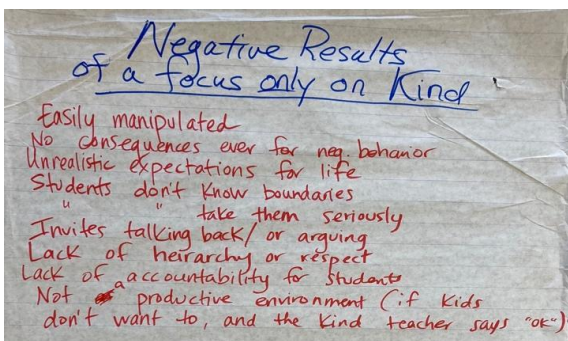 Negative Results
of a focus only on Kind
Easily manipulated
No consequences ever for neg. behavior
Unrealistic expectations for life
Students don't know boundaries
" " take them seriously
Invites talking back/ or arguing
Lack of heirarchy or respect
Lack of accountability for students
Not a productive environment (if kids
don't want to, and the kind teacher says "ok")